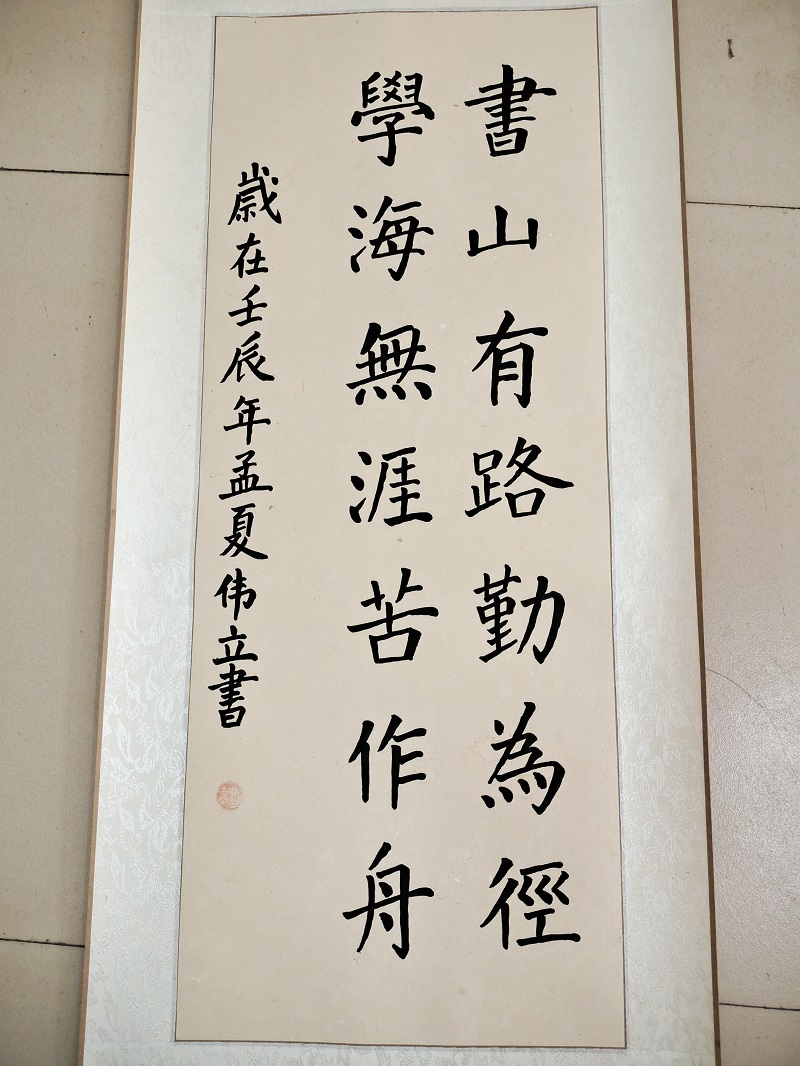 書山有路勤為徑
學海無涯苦作舟
歲在壬辰年孟夏伟立書